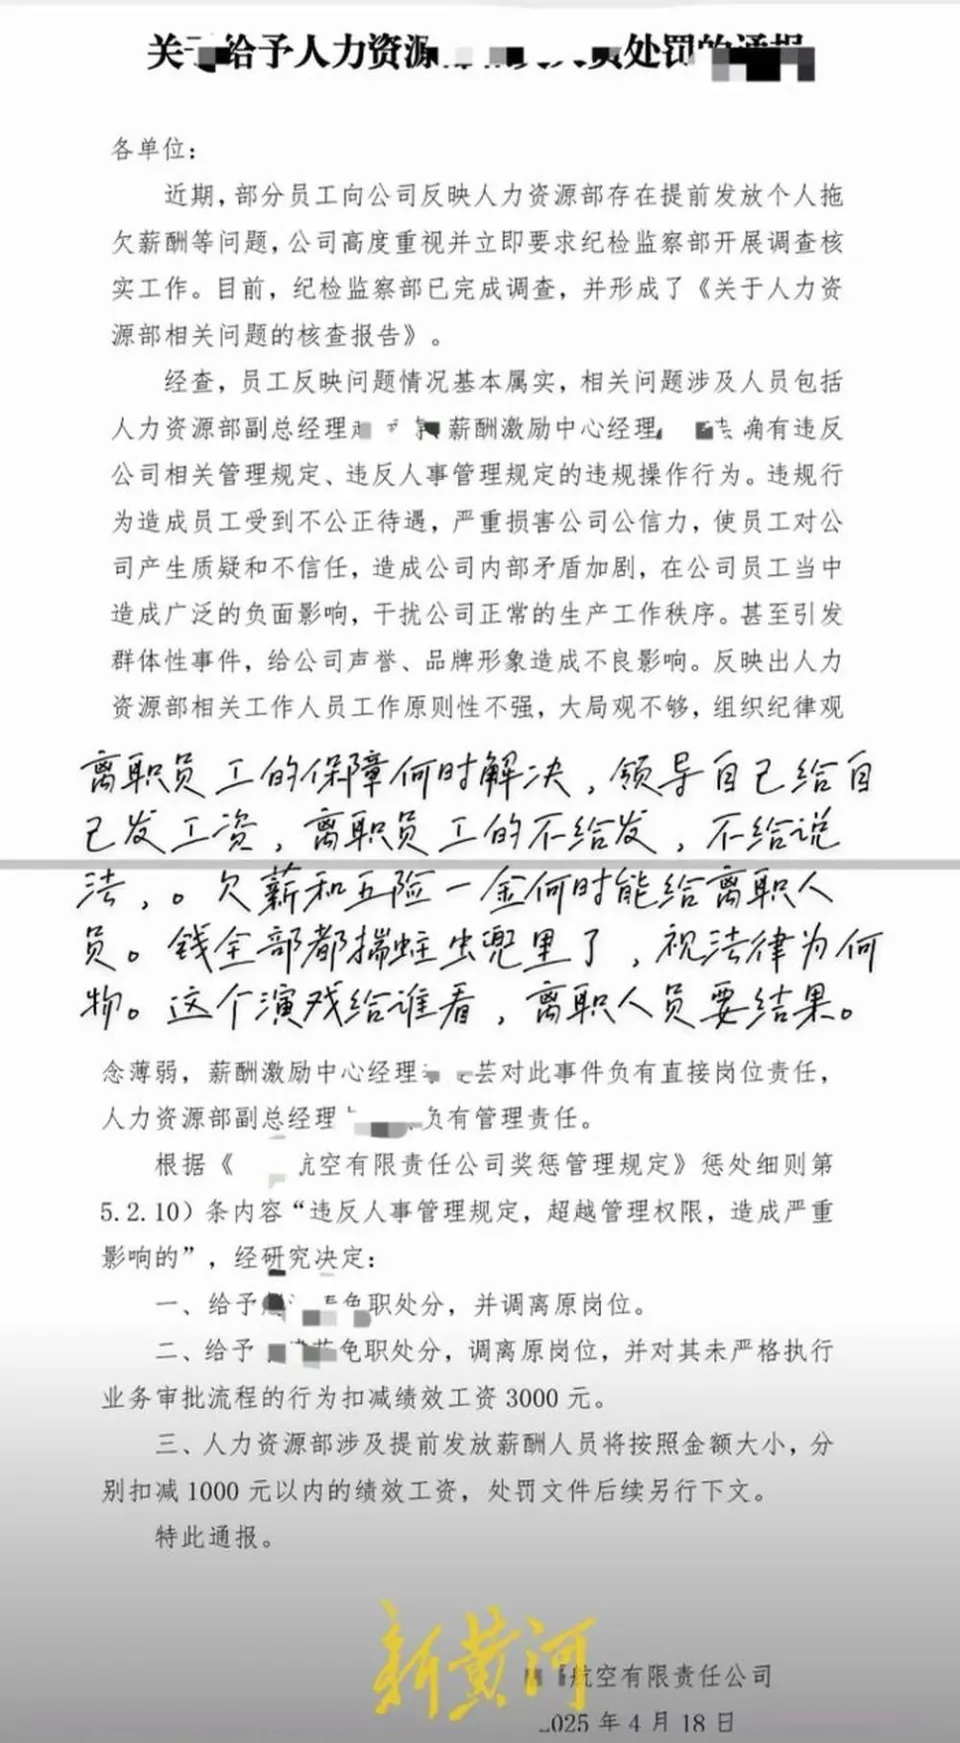 关于给予人力资源 处罚的通报
各单位：
近期，部分员工向公司反映人力资源部存在提前发放个人拖
欠薪酬等问题，公司高度重视并立即要求纪检监察部开展调查核
实工作。目前，纪检监察部已完成调查，并形成了《关于人力资
源部相关问题的核查报告》。
经查，员工反映问题情况基本属实，相关问题涉及人员包括
人力资源部副总经理 薪酬激励中心经理 确有违反
公司相关管理规定、违反人事管理规定的违规操作行为。违规行
为造成员工受到不公正待遇，严重损害公司公信力，使员工对公
司产生质疑和不信任，造成公司内部矛盾加剧，在公司员工当中
造成广泛的负面影响，干扰公司正常的生产工作秩序。甚至引发
群体性事件，给公司声誉、品牌形象造成不良影响。反映出人力
资源部相关工作人员工作原则性不强，大局观不够，组织纪律观
离职员工的保障何时解决，领导自己给自
己发工资，离职员工的不给发，不给说
法，。欠薪和五险一金何时能给离职人
员。钱全部都揣蛀虫兜里了，视法律为何
物。这个演戏给谁看，离职人员要结果。
念薄弱，薪酬激励中心经理 芸对此事件负有直接岗位责任，
人力资源部副总经理 负有管理责任。
根据《 航空有限责任公司奖惩管理规定》惩处细则第
5.2.10）条内容“违反人事管理规定，超越管理权限，造成严重
影响的”，经研究决定：
一、给予 免职处分，并调离原岗位。
二、给予 免职处分，调离原岗位，并对其未严格执行
业务审批流程的行为扣减绩效工资 3000 元。
三、人力资源部涉及提前发放薪酬人员将按照金额大小，分
别扣减 1000 元以内的绩效工资，处罚文件后续另行下文。
特此通报。
新黄河
航空有限责任公司
2025 年 4 月 18 日